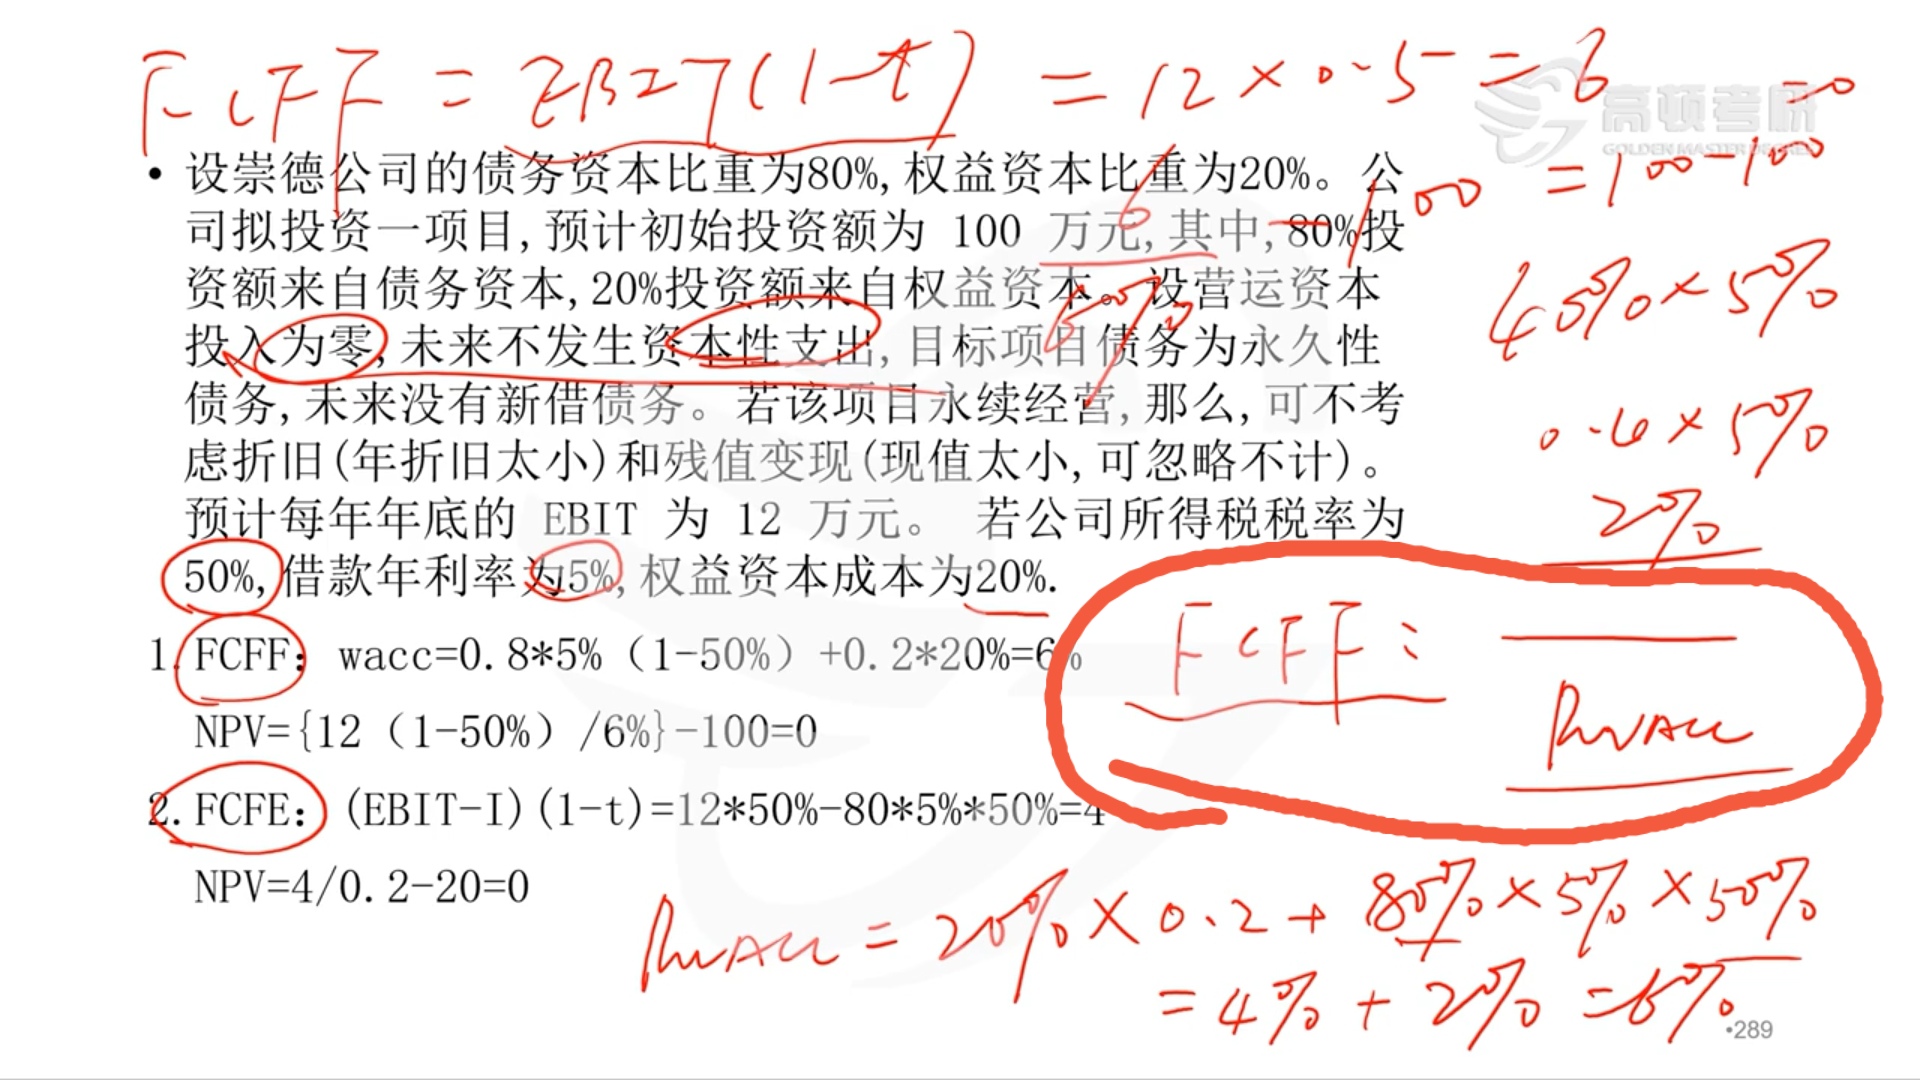 FCFF = EBIT(1-t) = 12×0.5 = 6
高顿考研
GOLDEN MASTER DEGREE
=0
• 设崇德公司的债务资本比重为80%,权益资本比重为20%。公
司拟投资一项目,预计初始投资额为 100 万元,其中,80%投
资额来自债务资本,20%投资额来自权益资本。设营运资本
投入为零,未来不发生资本性支出,目标项目债务为永久性
债务,未来没有新借债务。若该项目永续经营,那么,可不考
虑折旧(年折旧太小)和残值变现(现值太小,可忽略不计)。
预计每年年底的 EBIT 为 12 万元。 若公司所得税税率为
50%,借款年利率为5%,权益资本成本为20%.
6
6%
-100
=100-100
40%×5%
2%
1. FCFF: wacc=0.8*5%（1-50%）+0.2*20%=6%
NPV={12（1-50%）/6%}-100=0
FCFF:
RWACC
2. FCFE: (EBIT-I)(1-t)=12*50%-80*5%*50%=4
NPV=4/0.2-20=0
RWACC = 20%×0.2+80%×5%×50%
=4%+2%=6%
•289